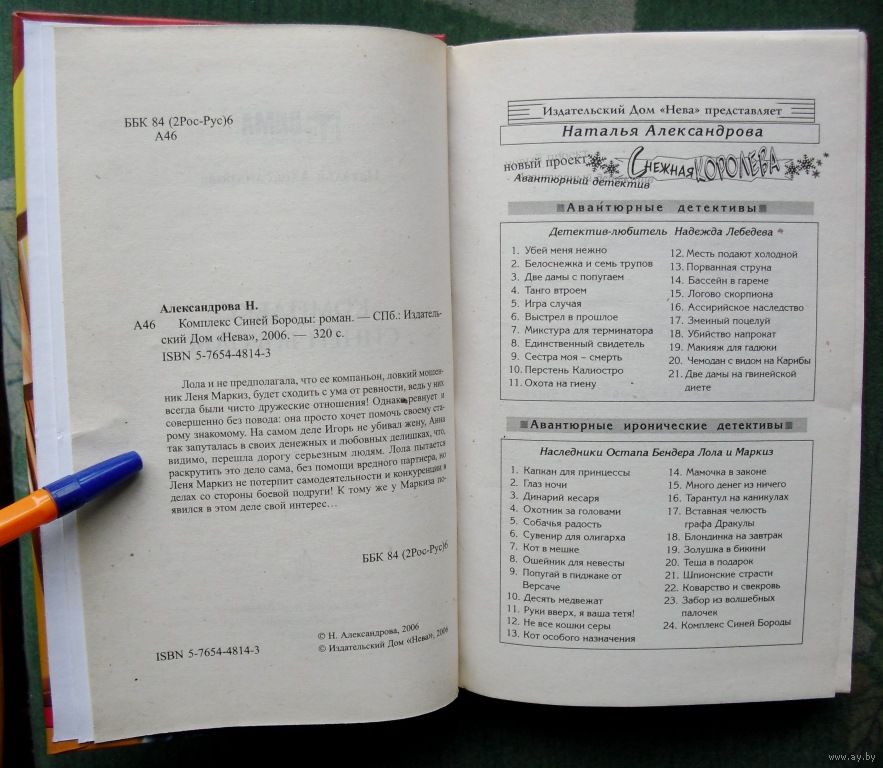 ББК 84 (2Рос-Рус)6
А46
Александрова Н.
А46 Комплекс Синей Бороды: роман. — СПб.: Издатель-
ский Дом «Нева», 2006. — 320 с.
ISBN 5-7654-4814-3
Лола и не предполагала, что ее компаньон, ловкий мошен-
ник Леня Маркиз, будет сходить с ума от ревности, ведь у них
всегда были чисто дружеские отношения! Однако ревнует и
совершенно без повода: она просто хочет помочь своему ста-
рому знакомому. На самом деле Игорь не убивал жену, Анна
так запуталась в своих денежных и любовных делишках, что,
видимо, перешла дорогу серьезным людям. Лола пытается
раскрутить это дело сама, без помощи вредного партнера, но
Леня Маркиз не потерпит самодеятельности и конкуренции в
делах со стороны боевой подруги! К тому же у Маркиза по-
явился в этом деле свой интерес…
ББК 84 (2Рос-Рус)6
ISBN 5-7654-4814-3
© Н. Александрова, 2006
© Издательский Дом «Нева», 2006
Издательский Дом «Нева» представляет
Наталья Александрова
новый проект
Снежная КОРОЛЕВА
Авантюрный детектив
Авантюрные детективы
Детектив-любитель Надежда Лебедева
1. Убей меня нежно
2. Белоснежка и семь трупов
3. Две дамы с попугаем
4. Танго втроем
5. Игра случая
6. Выстрел в прошлое
7. Микстура для терминатора
8. Единственный свидетель
9. Сестра моя – смерть
10. Перстень Калиостро
11. Охота на гиену
12. Месть подают холодной
13. Порванная струна
14. Бассейн в гареме
15. Логово скорпиона
16. Ассирийское наследство
17. Змеиный поцелуй
18. Убийство напрокат
19. Макияж для гадюки
20. Чемодан с видом на Карибы
21. Две дамы на гвинейской
диете
Авантюрные иронические детективы
Наследники Остапа Бендера Лола и Маркиз
1. Капкан для принцессы
2. Глаз ночи
3. Динарий кесаря
4. Охотник за головами
5. Собачья радость
6. Сувенир для олигарха
7. Кот в мешке
8. Ошейник для невесты
9. Попугай в пиджаке от
Версаче
10. Десять медвежат
11. Руки вверх, я ваша тетя!
12. Не все кошки серы
13. Кот особого назначения
14. Мамочка в законе
15. Много денег из ничего
16. Тарантул на каникулах
17. Вставная челюсть
графа Дракулы
18. Блондинка на завтрак
19. Золушка в бикини
20. Теща в подарок
21. Шпионские страсти
22. Коварство и свекровь
23. Забор из волшебных
палочек
24. Комплекс Синей Бороды
www.ay.by